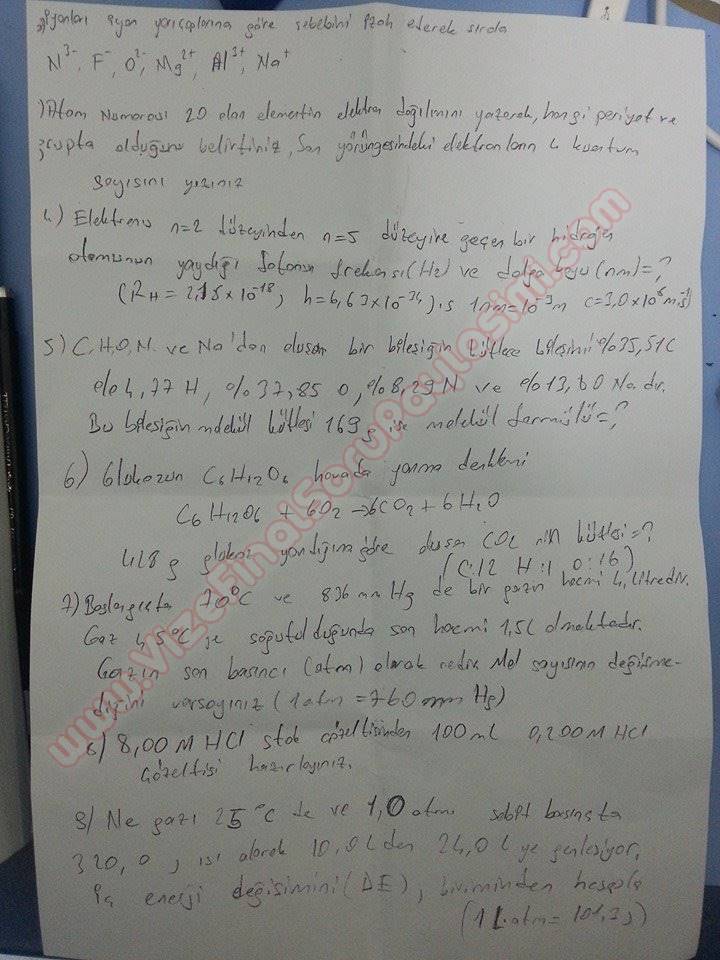 iyonları iyon yarıçaplarına göre sebebini izah ederek sırala
N³⁻, F⁻, O²⁻, Mg²⁺, Al³⁺, Na⁺
) Atom Numarası 20 olan elementin elektron dağılımını yazarak, hangi periyot ve
grupta olduğunu belirtiniz, Son yörüngesindeki elektronların 4 kuantum
sayısını yazınız
4.) Elektronu n=2 düzeyinden n=5 düzeyine geçen bir hidrojen
atomunun yaydığı fotonun frekansı (Hz) ve dalga boyu (nm)=?
h=6,63x10⁻³⁴ j.s
5) C, H, O, N ve Na'dan oluşan bir bileşiğin kütlece bileşimi %35,51 C
%4,77 H, %37,85 O, %8,29 N ve %13,60 Na dır.
Bu bileşiğin molekül kütlesi 169 g ise molekül formülü=?
6) Glukozun C₆H₁₂O₆ havada yanma denklemi
C₆H₁₂O₆ + 6O₂ → 6CO₂ + 6H₂O
g glukoz yandığına göre oluşan CO₂ nin kütlesi=?
(C:12 H:1 O:16)
7) Başlangıçta 70°C ve 836 mm Hg de bir gazın hacmi 4 litredir.
Gaz 4,5°C ye soğutulduğunda son hacmi 1,5L olmaktadır.
Gazın son basıncı (atm) olarak nedir. Mol sayısının değişme-
diğini varsayınız (1 atm = 760 mm Hg)
8,00 M HCl stok çözeltisinden 100 ml 0,200 M HCl
çözeltisi hazırlayınız.
Ne gazı 25°C de ve 1,0 atm sabit basınçta
320,0 J ısı alarak 10,0 L den 24,0 L ye genleşiyor,
iç enerji değişimini (ΔE), j biriminden hesapla
(1 L.atm = 101,3 j)
www.VizeFinalSoruPaylasimi.com